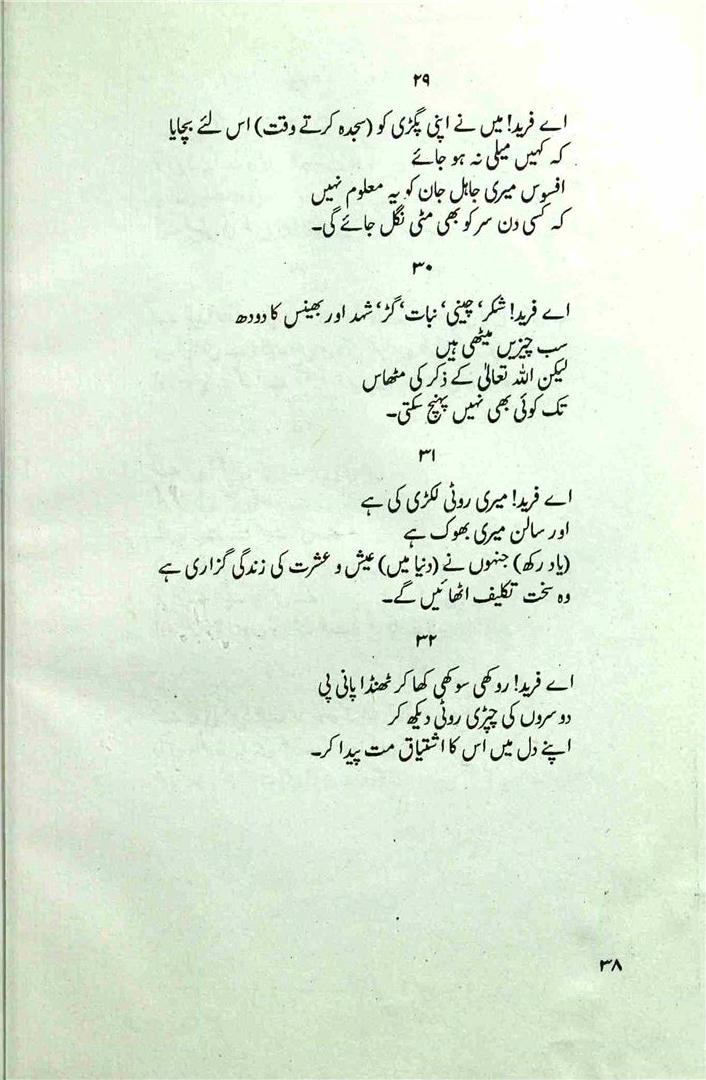 ۲۹
اے فرید! میں نے اپنی پگڑی کو (سجدہ کرتے وقت) اس لئے بچایا
کہ کہیں میلی نہ ہو جائے
افسوس میری جاہل جان کو یہ معلوم نہیں
کہ کسی دن سر کو بھی مٹی نگل جائے گی۔
۳۰
اے فرید! شکر‘ چینی‘ نبات‘ گڑ‘ شہد اور بھینس کا دودھ
سب چیزیں میٹھی ہیں
لیکن اللہ تعالیٰ کے ذکر کی مٹھاس
تک کوئی بھی نہیں پہنچ سکتی۔
۳۱
اے فرید! میری روٹی لکڑی کی ہے
اور سالن میری بھوک ہے
(یاد رکھ) جنہوں نے (دنیا میں) عیش و عشرت کی زندگی گزاری ہے
وہ سخت تکلیف اٹھائیں گے۔
۳۲
اے فرید! روکھی سوکھی کھا کر ٹھنڈا پانی پی
دوسروں کی چپڑی روٹی دیکھ کر
اپنے دل میں اس کا اشتیاق مت پیدا کر۔
۳۸